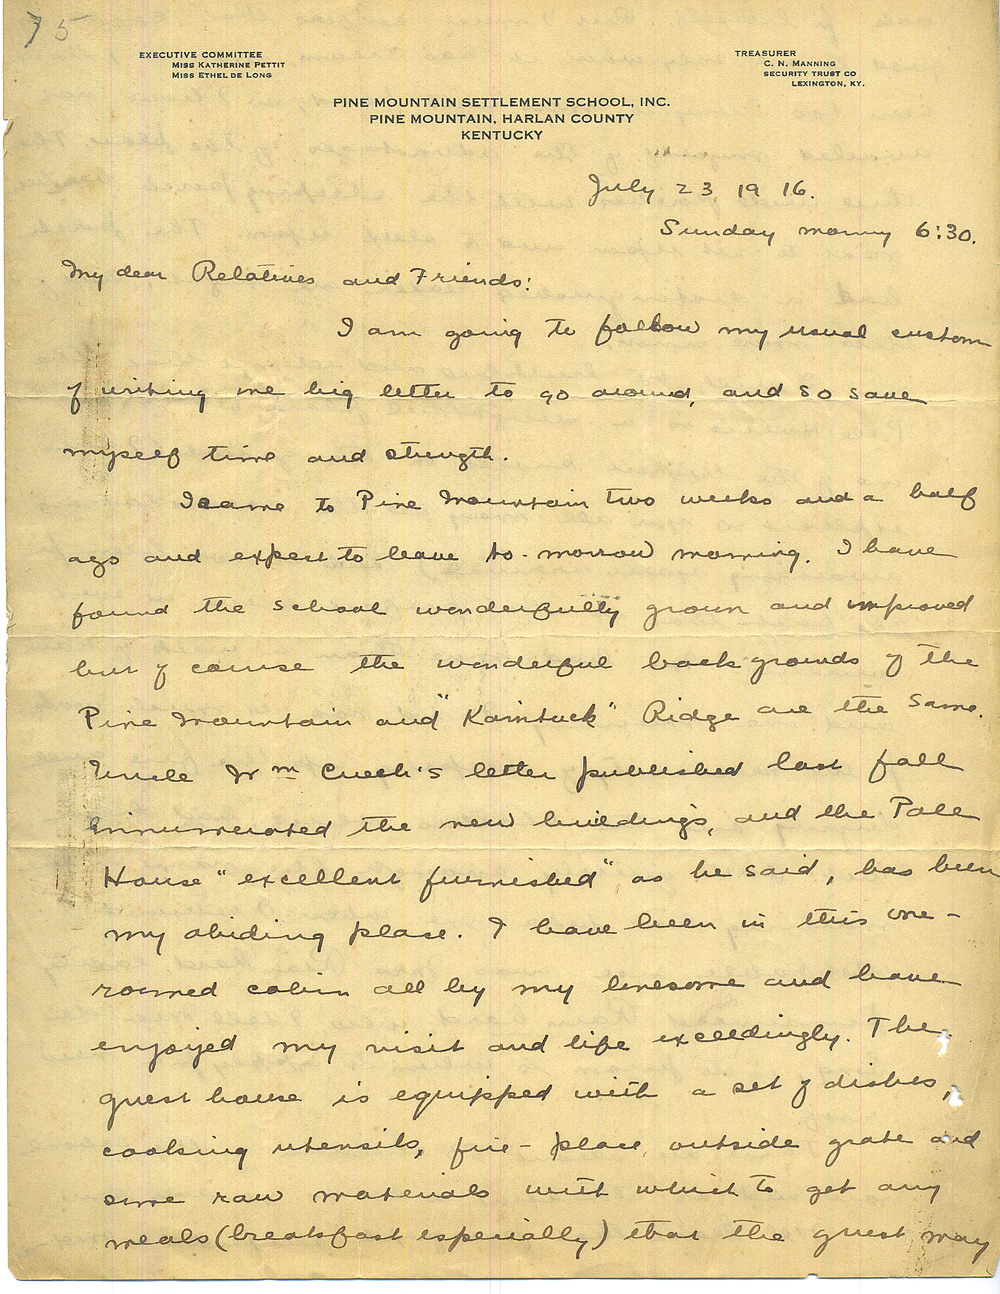 75
EXECUTIVE COMMITTEE
MISS KATHERINE PETTIT
MISS ETHEL DE LONG
TREASURER
C. N. MANNING
SECURITY TRUST CO
LEXINGTON, KY.
PINE MOUNTAIN SETTLEMENT SCHOOL, INC.
PINE MOUNTAIN, HARLAN COUNTY
KENTUCKY
July 23, 1916.
Sunday morning 6:30.
My dear Relatives and Friends:
I am going to follow my usual custom
of writing one big letter to go around, and so save
myself time and strength.
I came to Pine Mountain two weeks and a half
ago and expect to leave to-morrow morning. I have
found the school wonderfully grown and improved
but of course the wonderful back grounds of the
Pine Mountain and "Kaintuck" Ridge are the same.
Uncle Wm Creech's letter published last fall
ennumerated the new buildings, and the Pole
House "excellent furnished" as he said, has been
my abiding place. I have been in this one-
roomed cabin all by my lonesome and have
enjoyed my visit and life exceedingly. The
guest house is equipped with a set of dishes,
cooking utensils, fire-place, outside grate and
some raw materials with which to get any
meals (breakfast especially) that the guest may